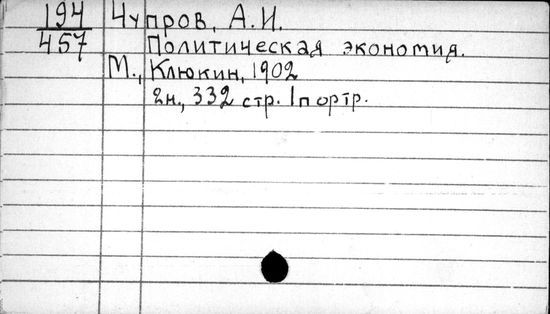 194
457
Чупров, А.И.
Политическая экономия.
М., Клюкин, 1902
2н., 332 стр. 1 портр.